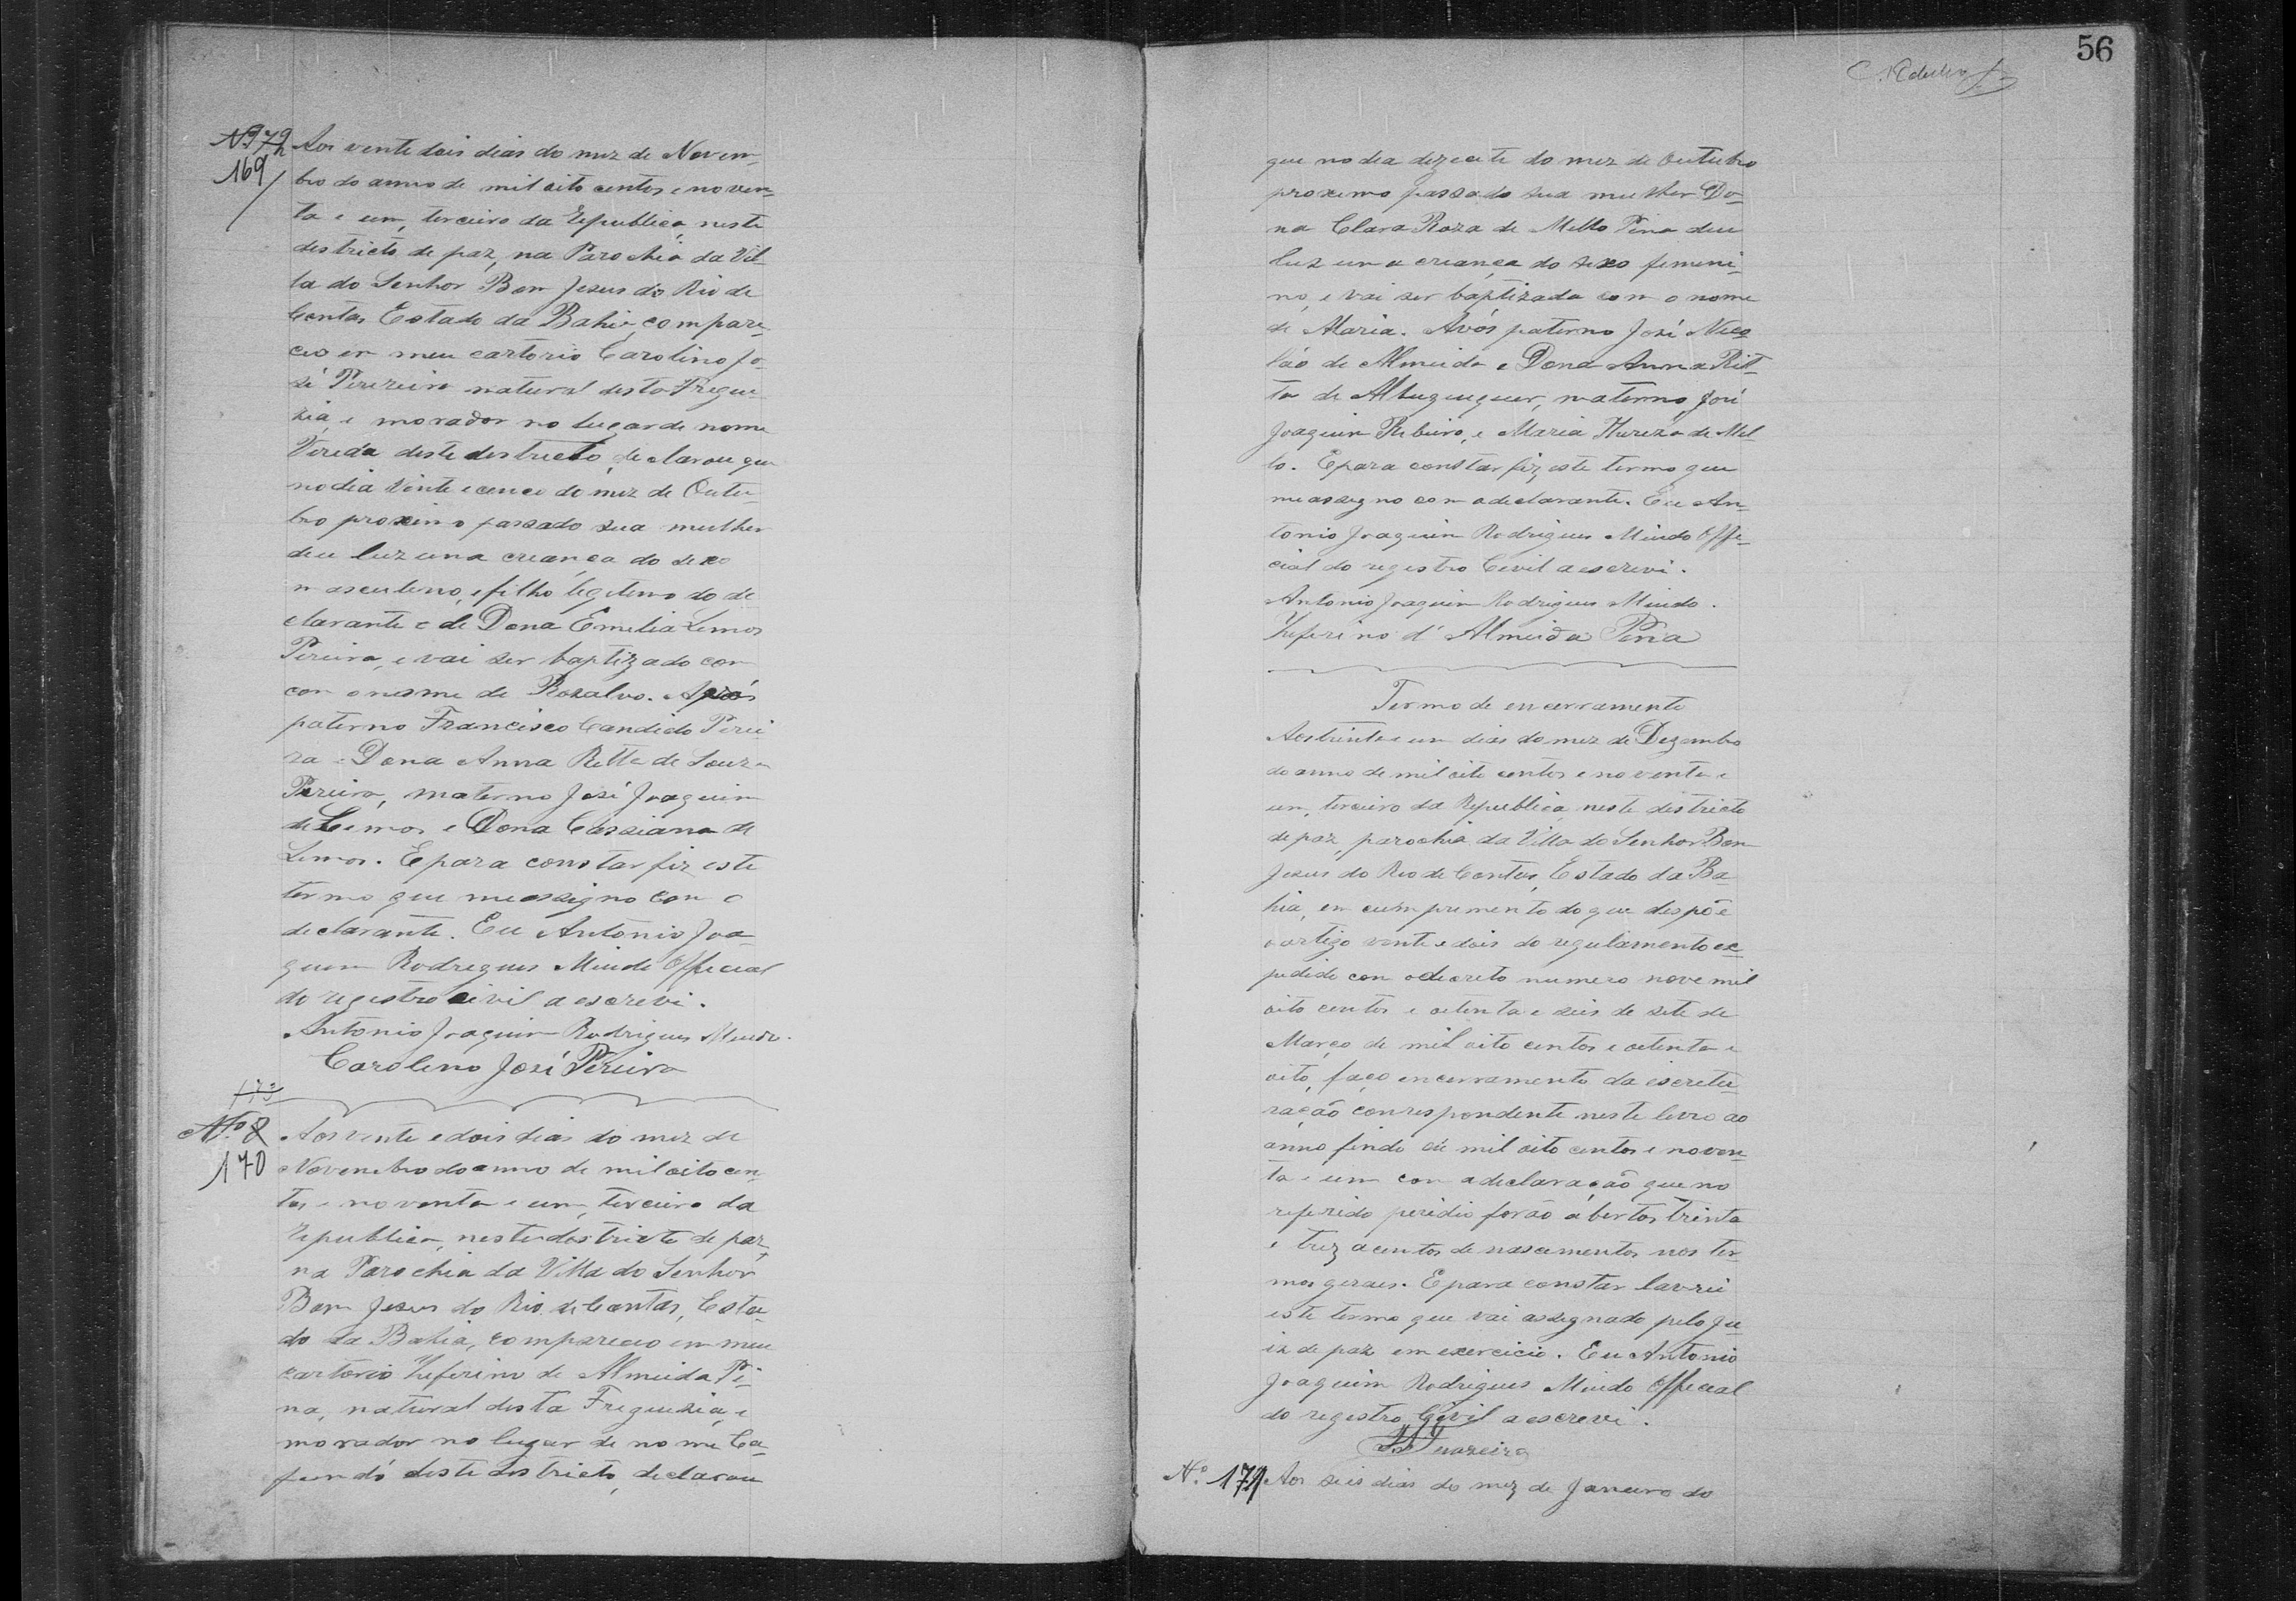 56
Nº 172
169
Aos vente dois dias do mez de Novem-
bro do anno de mil oito centos e noven-
ta e um, terceiro da Republica, neste
destricto de paz, na Parochia da Vil-
la do Senhor Bom Jesus do Rio de
Contas Estado da Bahia, compare-
ceo em meu cartorio Carolino Jo-
sé Perereira natural desta Fregue-
zia, e morador no lugar de nome
Vereda deste destricto, declarou que
no dia vinte e cenco do mez de Outu-
bro proximo passado sua mulher
deu luz uma creança do sexo
masculeno, e filho legitemo do de
clarante e de Dona Emelia Lemos
Pereira, e vai ser baptizado com
com o nesme de Rozalvo. Avós
paterno Francisco Candido Perei
ra e Dona Anna Retta de Souza
Pereira, materno José Joaquim
de Lemos e Dona Cassiana de
Lemos. E para constar fiz este
termo que me assigno com o
declarante. Eu Antonio Joa-
quem Rodregues Meudo Offecial
do registro civil a escrevi.
Antonio Joaquim Rodrigues Meudo.
Caroleno José Pereira
Nº 8
170
Aos vente e dois dias do mez de
Novembro do anno de mil oito cen
tos e noventa e um, terceiro da
Republica, neste destricto de paz,
na Parochia da Villa do Senhor
Bom Jesus do Rio de Contas, Esta-
do da Bahia, compareceo em meu
cartorio Zeferino de Almeida Pi-
na, natural desta Freguezia, e
morador no lugar de nome Ca-
fundó deste destricto, declarou
que no dia dezecete do mez de Outubro
proxemo passado sua mulher Do-
na Clara Roza de Mello Pina deu
luz uma creança do sexo femeni-
no, e vai ser baptizada com o nome
de Maria. Avós paterno José Nico-
láo de Almeida e Dona Anna Rit-
ta de Albuquequer, materno, José
Joaquim Ribeiro, e Maria Thereza de Mel-
lo. E para constar fiz este termo que
me assegno com o declarante. Eu An-
tonio Joaquim Rodrigues Meudo Offe-
cial do registro Cevil a escrevi.
Antonio Joaquim Rodrigues Meudo.
Zeferino d'Almeida Pina
Termo de encerramento
Aos trinta e um dias do mez de Dezembro
do anno de mil oito centos e noventa e
um, terceiro da Republica, neste destricto
de paz, parochia da Villa do Senhor Bom
Jesus do Rio de Contas, Estado da Ba-
hia, em cumprimento do que despõe
o artigo vente e dois do regulamento ex-
pedido com o decreto numero nove mil
oito centos e oitenta e seis de sete de
Março de mil oito centos e oitenta e
oito, faço encerramento da escretu-
ração conrespondente neste levro ao
anno findo de mil oito centos e noven-
ta e um com a declaração que no
referido peridio forão abertos trinta
e trez acentos de nascementos nos ter-
mos geraes. E para constar lavrei
este termo que vai assegnado pelo ju-
iz de paz em exercicio. Eu Antonio
Joaquim Rodrigues Meudo Offecial
do registro Cevil a escrevi.
Nº 171
Aos seis dias do mez de Janeiro do